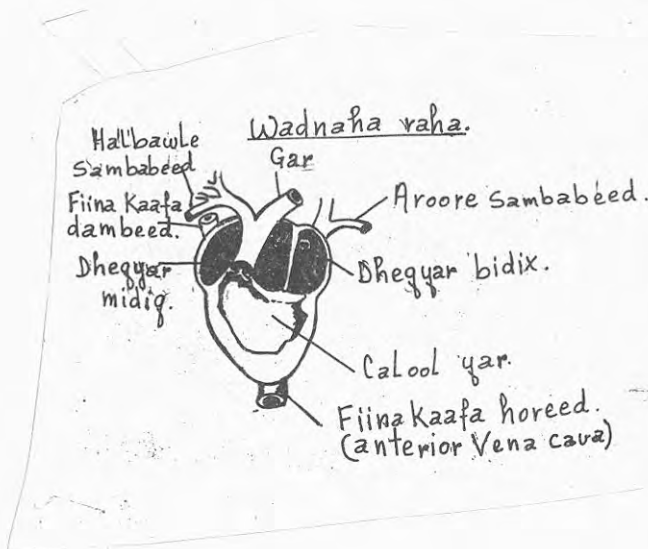 Wadnaha raha.
Halbawle
Sambabeed
Gar
Aroore Sambabeed.
Fiina Kaafa
dambeed.
Dheqyar
midiq.
Dheqyar bidix.
Calool yar.
Fiina Kaafa horeed.
(anterior Vena cava)